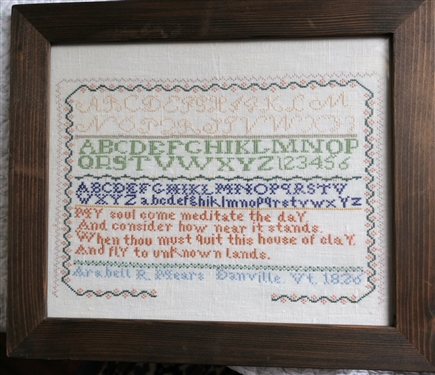 ABCDEFGHIKLM
NOPQRSTVWXYZ
ABCDEFGHIKLMNOP
QRSTVWXYZ 123456
ABCDEFGHIKLMNOPQRSTV
WXYZ abcdefghiklmnopqrstvwxyz
MY soul come meditate the daY
And consider how near it stands.
When thou must quit this house of claY
And flY to unKnown lands.
Arabell R. Mears Danville Vt. 1826